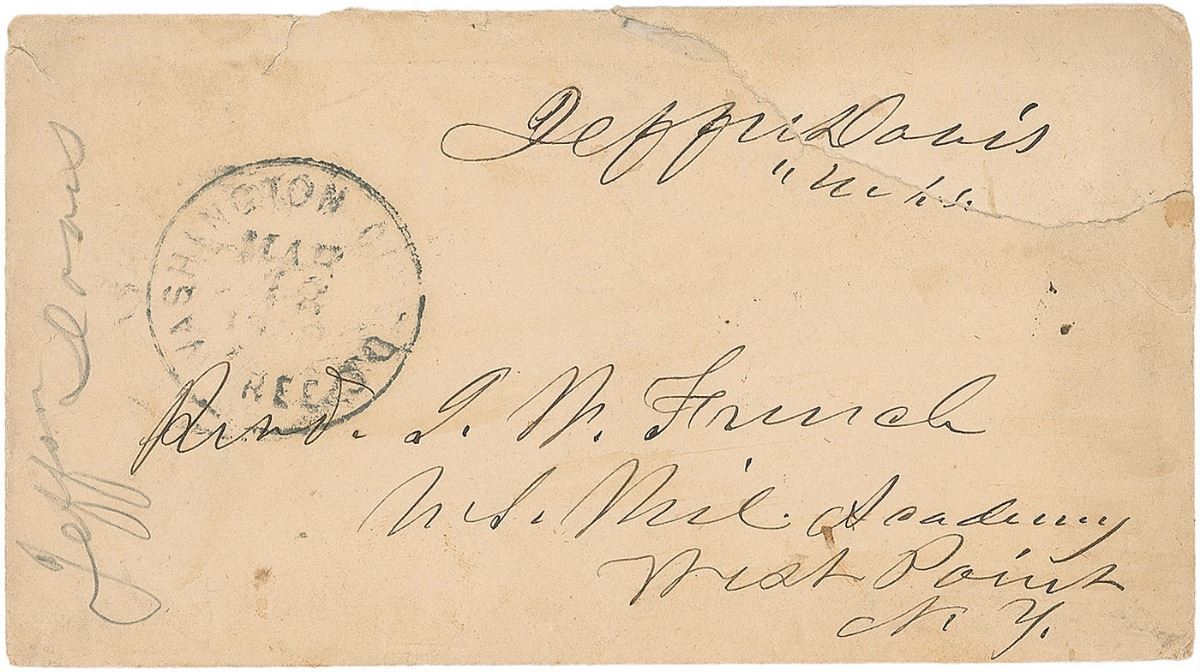 Jeffn Davis
WASHINGTON D.
MAR
FREE
Revd. J. W. French
U.S. Mil. Academy
West Point
N. Y.
Jeffn Davis